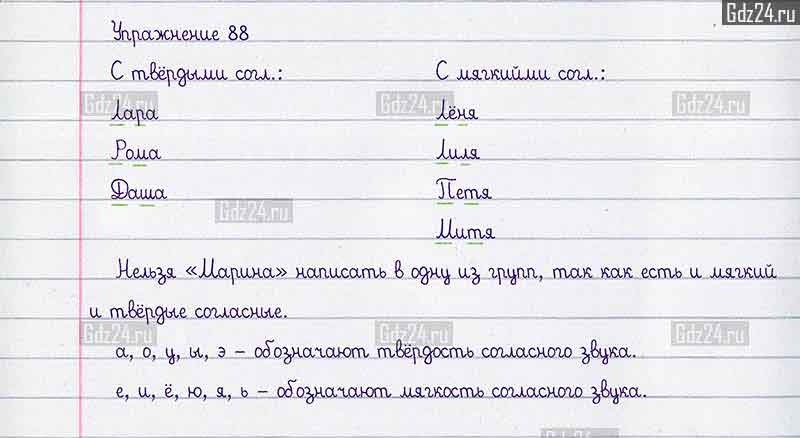 Gdz24.ru
Упражнение 88
С твёрдыми согл.: С мягкийми согл.:
Gdz24.ru Gdz24.ru Gdz24.ru
Лара Лёня
Рома Лиля
Даша Петя
Gdz24.ru
Митя
Нельзя «Марина» написать в одну из групп, так как есть и мягкий
и твёрдые согласные.
Gdz24.ru Gdz24.ru Gdz24.ru
а, о, у, ы, э – обозначают твёрдость согласного звука.
е, и, ё, ю, я, ь – обозначают мягкость согласного звука.
Gdz24.ru